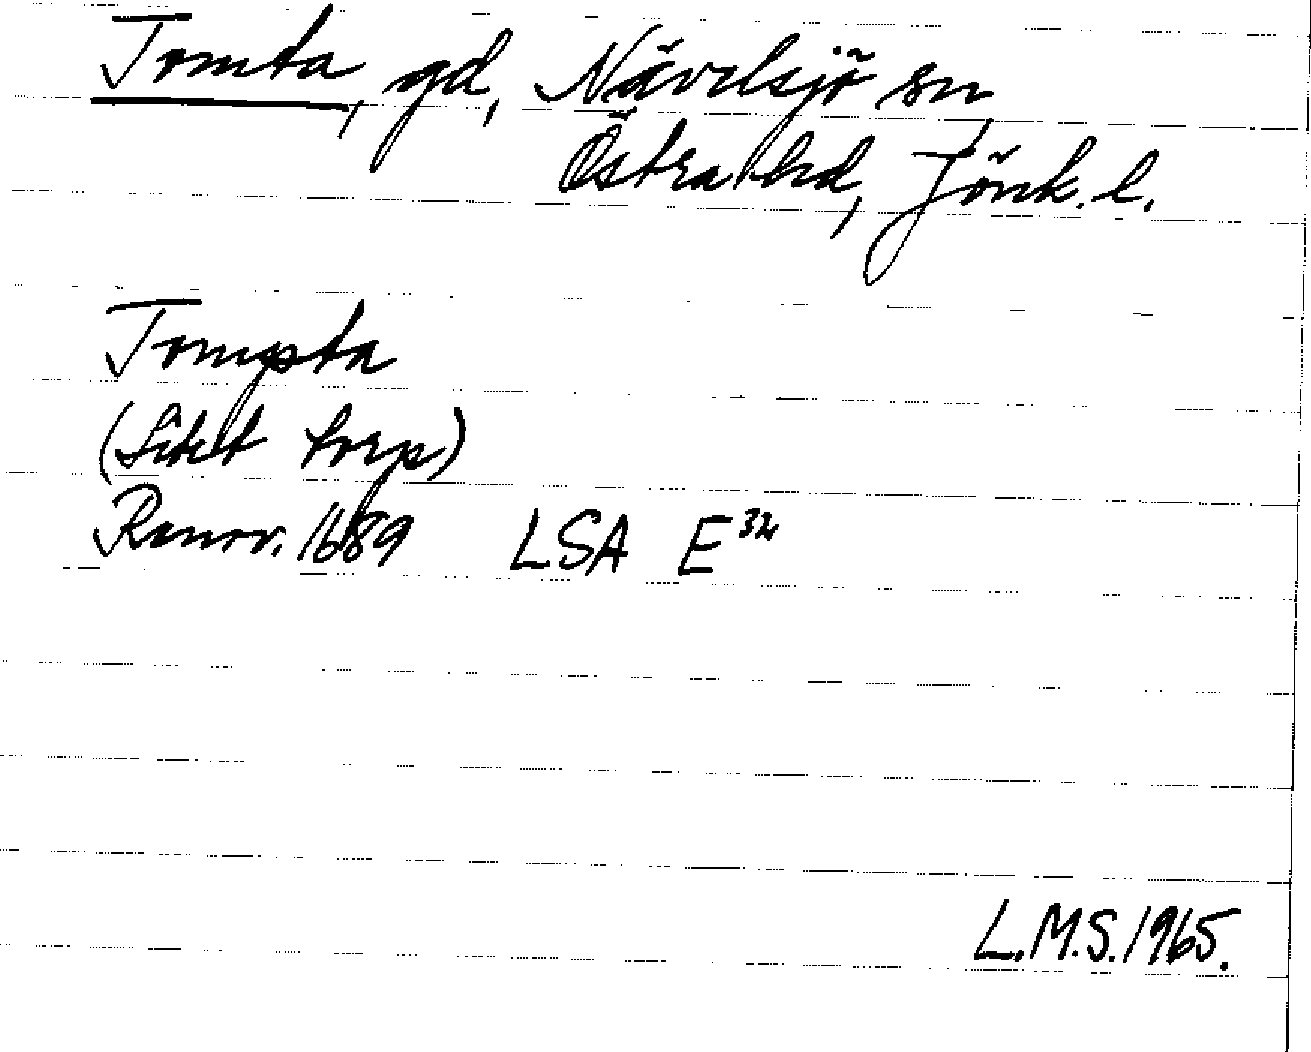 Tomta, gd, Nävelsjö sn
Östra hd, Jönk. l.
Tompta
(Litet torp)
Renov. 1689 LSA E³²
L.M.S. 1965.